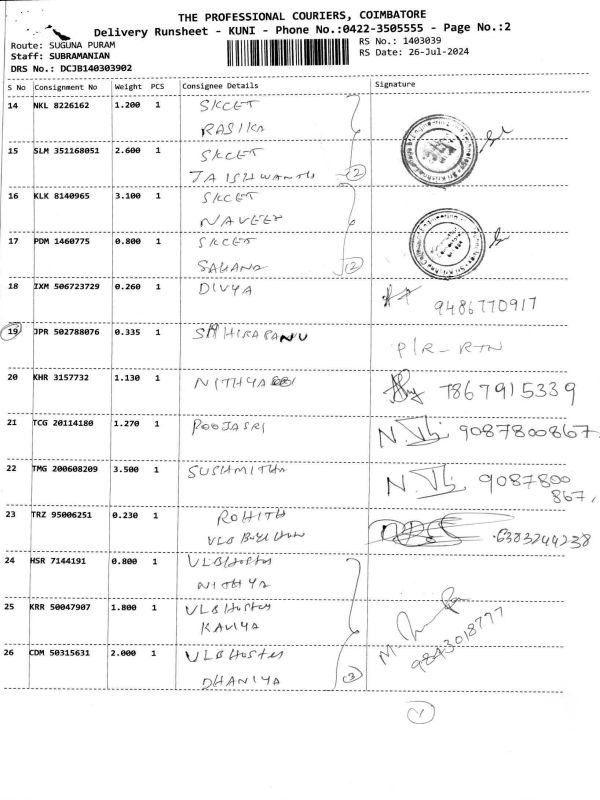 THE PROFESSIONAL COURIERS, COIMBATORE
Delivery Runsheet - KUNI - Phone No.:0422-3505555 - Page No.:2
Route: SUGUNA PURAM
RS No.: 1403039
Staff: SUBRAMANIAN
RS Date: 26-Jul-2024
DRS No.: DCJB140303902
S No Consignment No Weight PCS Consignee Details Signature
14 NKL 8226162 1.200 1 SKCET
RASIKA
15 SLM 351168051 2.600 1 SKCET
JAISHWANTH 2
16 KLK 8140965 3.100 1 SKCET
NAVEEN
17 PDM 1460775 0.800 1 SKCET
SAHANA 2
18 IXM 506723729 0.260 1 DIVYA
9486770917
19 JPR 502788076 0.335 1 SMHIRABANU
P/R-RTN
20 KHR 3157732 1.130 1 NITHYA
7867915339
21 TCG 20114180 1.270 1 POOJASRI
9087800867.
22 TMG 200608209 3.500 1 SUSHMITHA
9087800
867,
23 TRZ 95006251 0.230 1 ROHITH
VLB
6383244238
24 HSR 7144191 0.800 1 VLB Hostes
NITHYA
25 KRR 50047907 1.800 1 VLB Hostes
KAVIYA
9843018777
26 CDM 50315631 2.000 1 VLB Hostes
DHANIYA 3